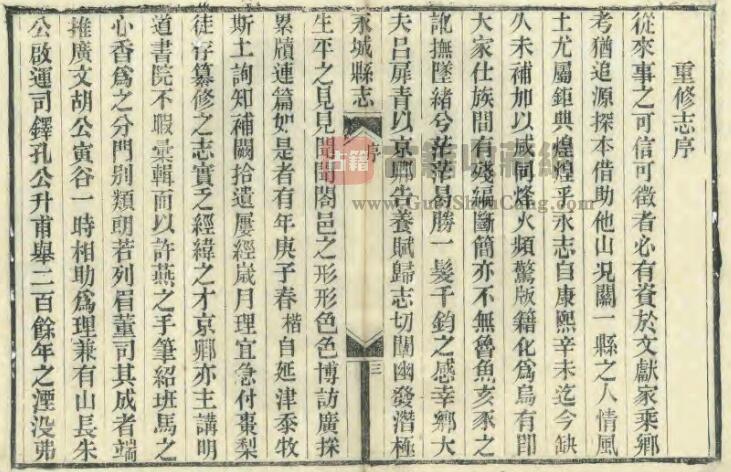 重修志序
從來事之可信可徵者必有資於文獻家乘鄉
考猶追源探本借助他山况關一縣之人情風
土尤屬鉅典煌煌乎永志自康熙辛未迄今缺
久未補加以咸同烽火頻驚版籍化爲烏有即
大家仕族間有殘編斷簡亦不無魯魚亥豕之
訛撫墜緒兮茫茫曷勝一髮千鈞之感幸鄉大
夫呂扉青以京鄉告養賦歸志切闡幽發潛極
永城縣志
序
三
生平之見見聞聞闔邑之形形色色博訪廣採
累牘連篇如是者有年庚子春楷自延津忝牧
斯土詢知補闕拾遺屢經歲月理宜急付棗梨
徒存纂修之志實乏經緯之才京鄉亦主講明
道書院不暇彙輯而以許燕之手筆紹班馬之
心香爲之分門别類朗若列眉董司其成者端
推廣文胡公寅谷一時相助爲理兼有山長朱
公啟運司鐸孔公升甫舉二百餘年之湮没弗
古籍
www.GuJiShouCang.com